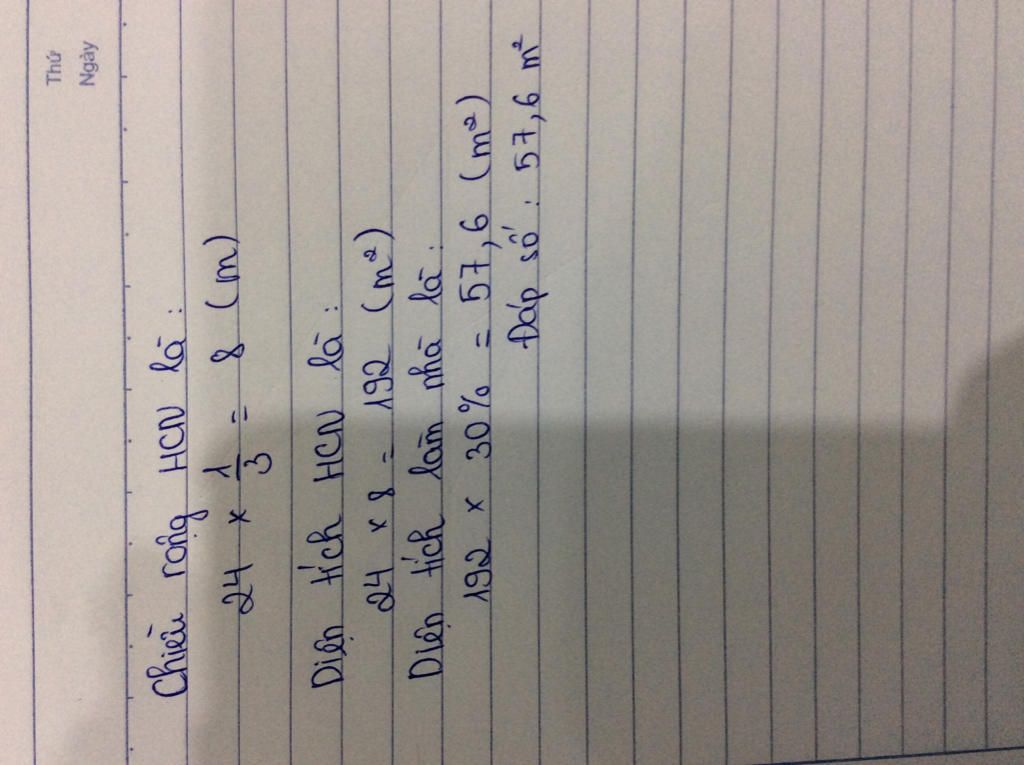 Thứ
Ngày
Chiều rộng HCN là :
24 x 1/3 = 8 (m)
Diện tích HCN là :
24 x 8 = 192 (m²)
Diện tích làm nhà là :
192 x 30% = 57,6 (m²)
Đáp số : 57,6 m²